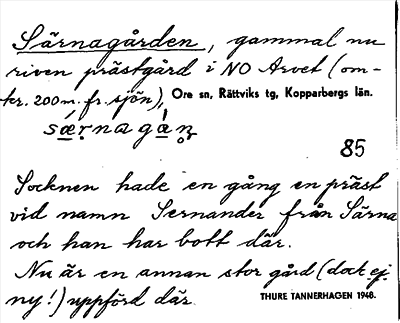 Särnagården, gammal nu
riven prästgård i NO Arvet (om-
kr. 200 m. fr. sjön), Ore sn, Rättviks tg, Kopparbergs län.
sǽ̱ṛnagá̱ṇ̥
85
Socknen hade en gång en präst
vid namn Sernander från Särna
och han har bott där.
Nu är en annan stor gård (dock ej
ny!) uppförd där.
THURE TANNERHAGEN 1948.